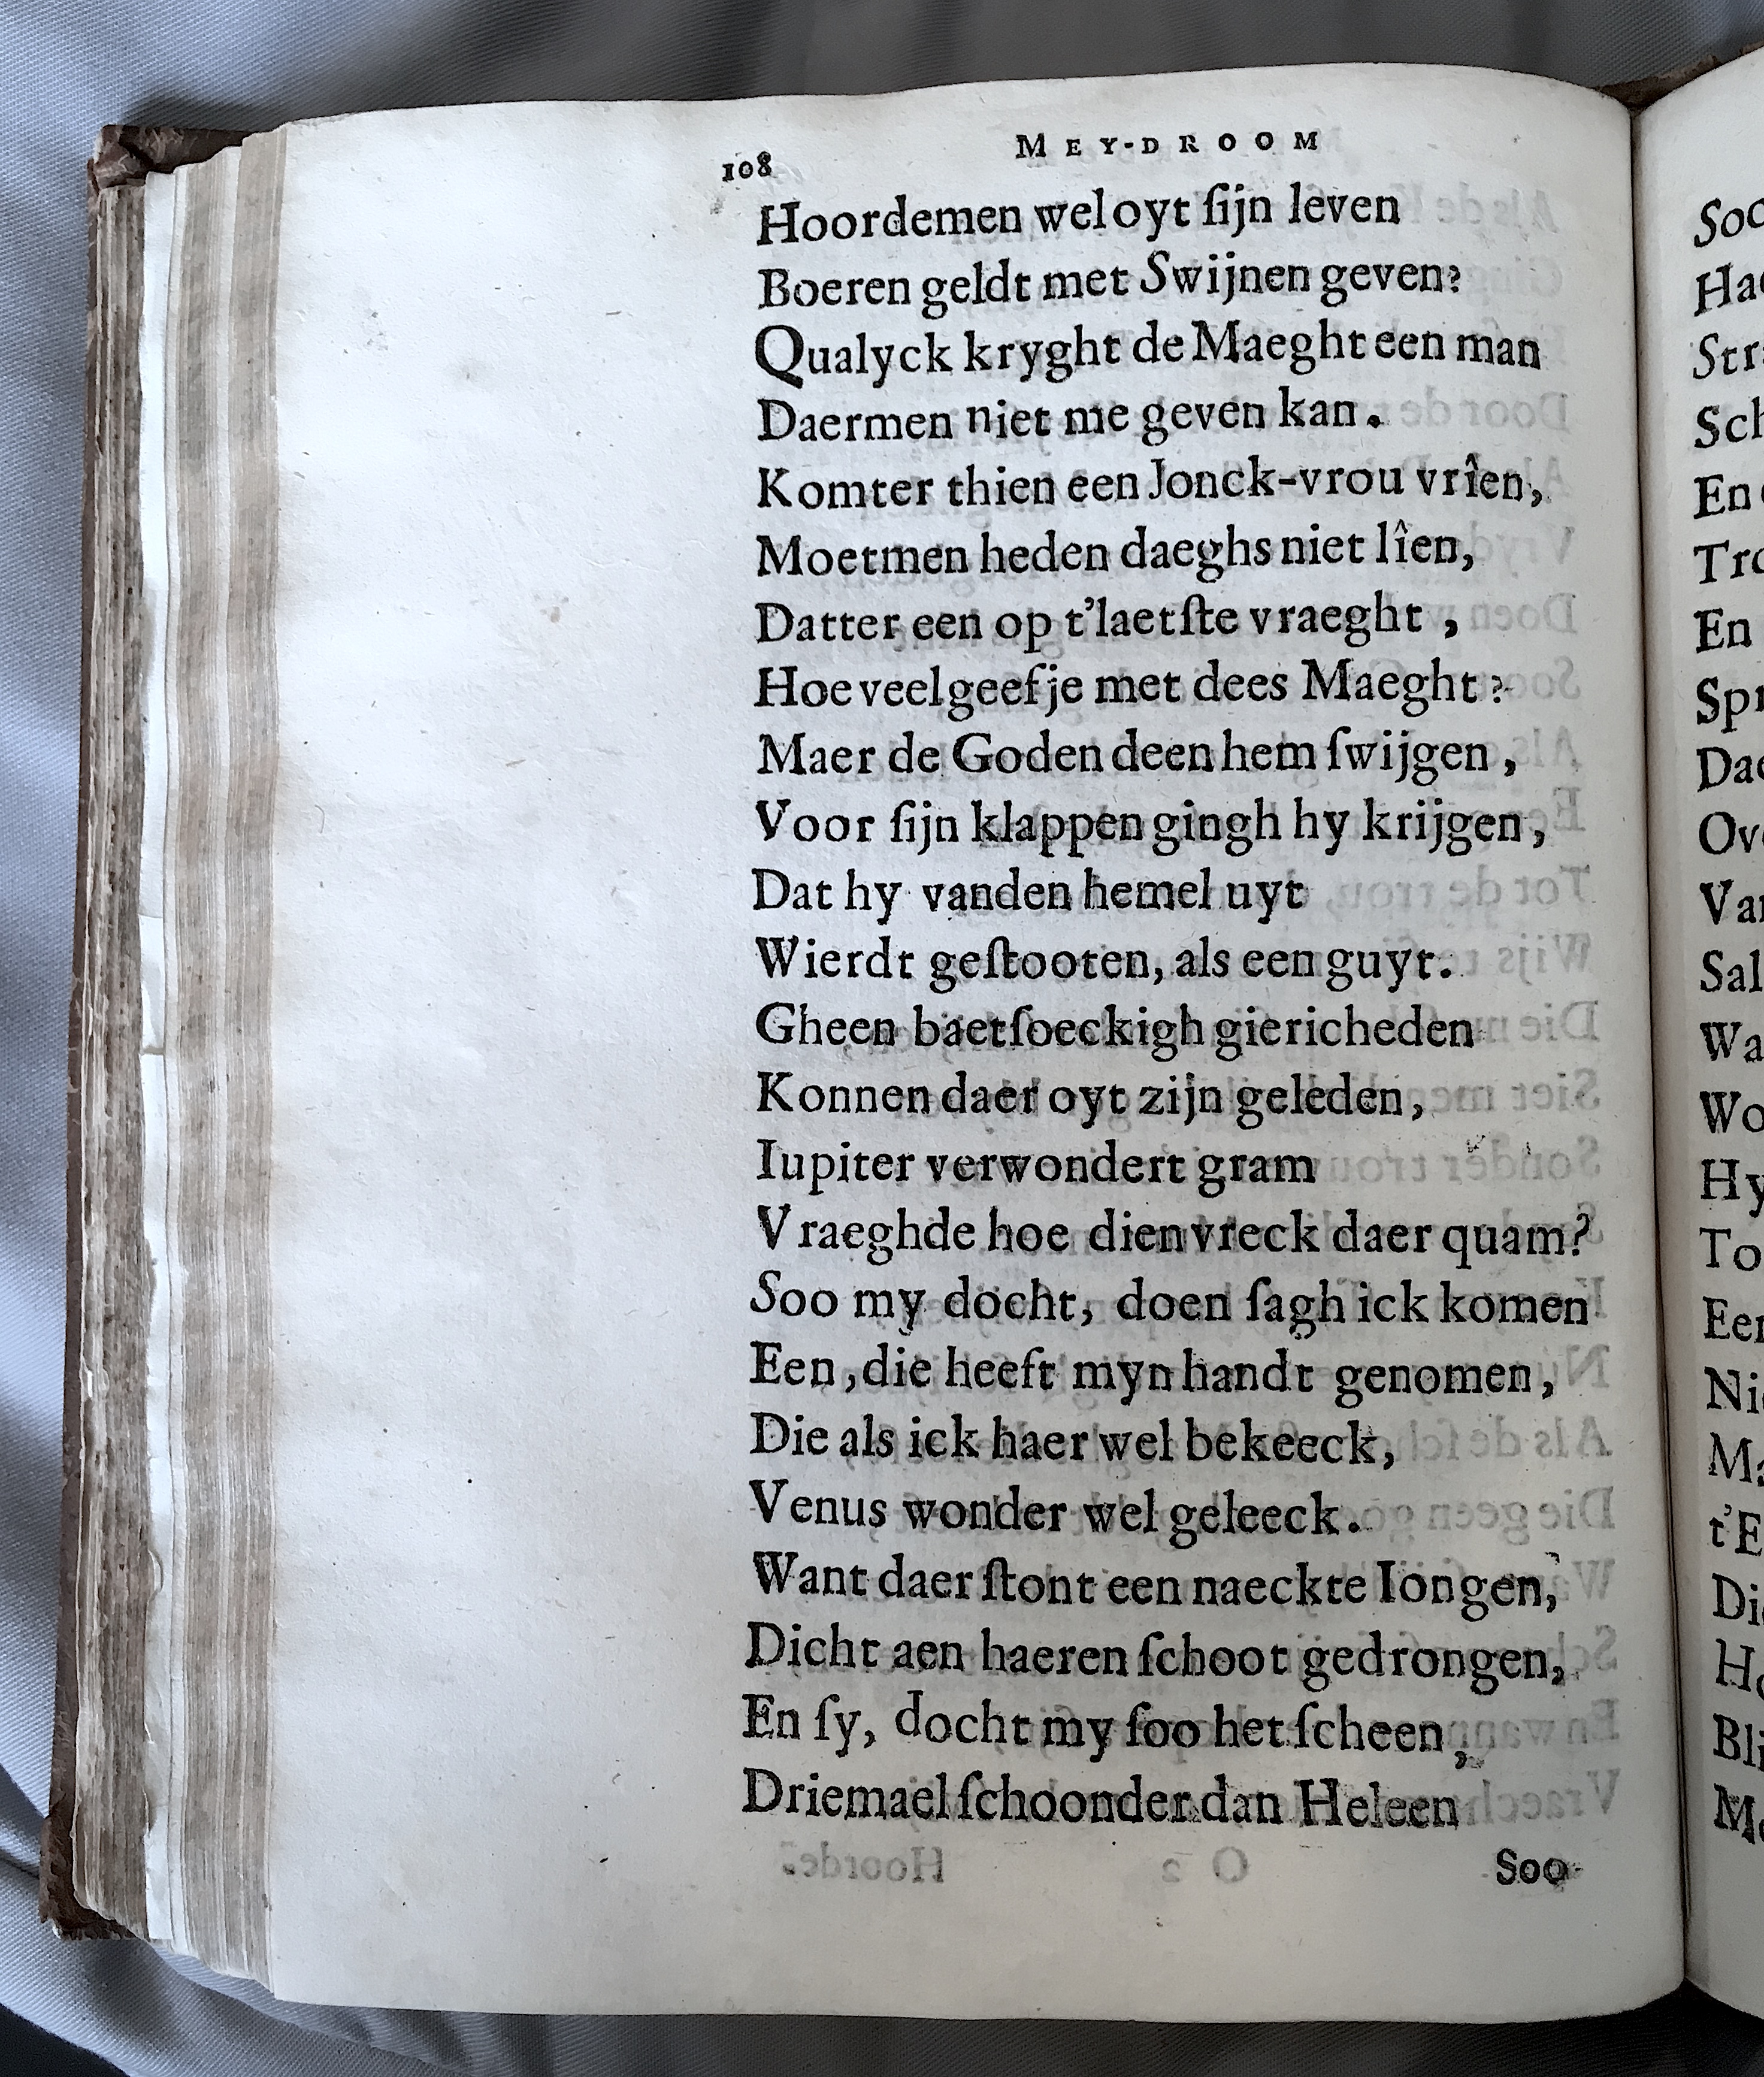 108 MEY-DROOM
Hoordemen wel oyt ſijn leven
Boeren geldt met Swijnen geven?
Qualyck kryght de Maeght een man
Daermen niet me geven kan.
Komter thien een Jonck-vrou vrîen,
Moetmen heden daeghs niet lîen,
Datter een op t'laetſte vraeght,
Hoe veel geef je met dees Maeght?
Maer de Goden deen hem ſwijgen,
Voor ſijn klappen gingh hy krijgen,
Dat hy vanden hemel uyt
Wierdt geſtooten, als een guyt.
Gheen baetſoeckigh giericheden
Konnen daer oyt zijn geleden,
Iupiter verwondert gram
Vraeghde hoe dien vreck daer quam?
Soo my docht, doen ſagh ick komen
Een, die heeft myn handt genomen,
Die als ick haer wel bekeeck,
Venus wonder wel geleeck.
Want daer ſtont een naeckte Iongen,
Dicht aen haeren ſchoot gedrongen,
En ſy, docht my ſoo het ſcheen,
Driemael ſchoonder dan Heleen
Soo
Soo
En
En